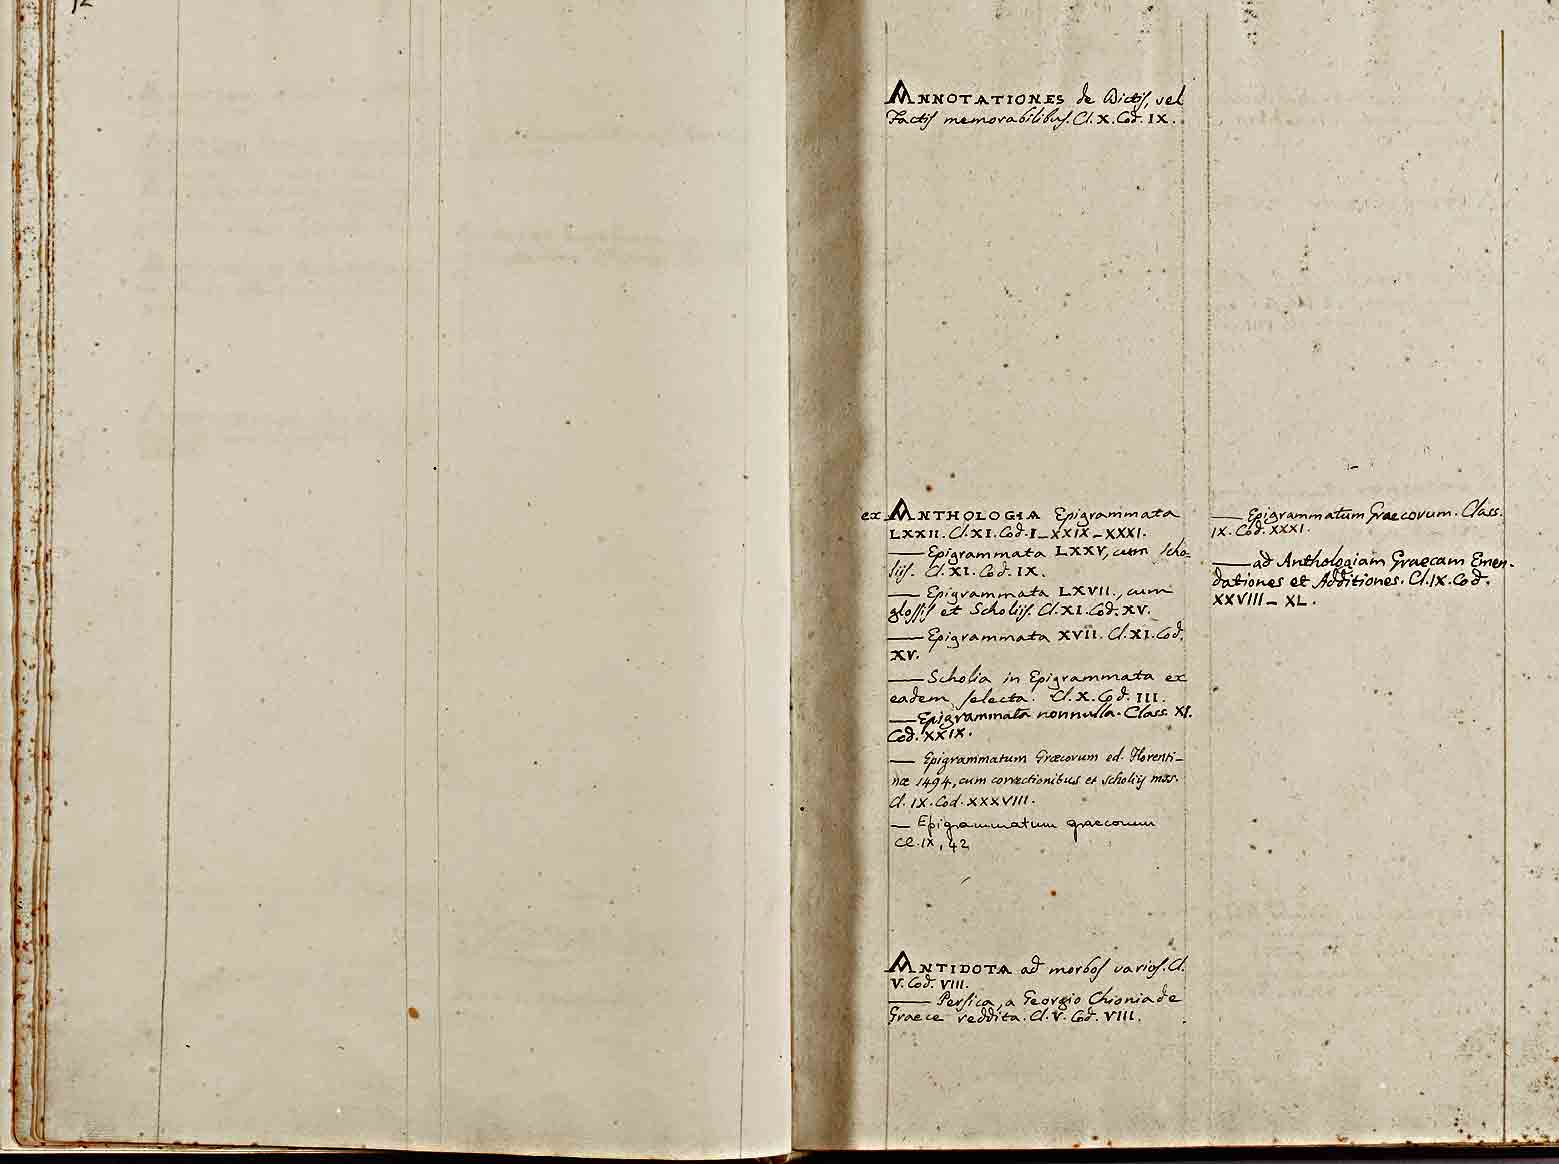 12
ANNOTATIONES de Dictis, vel
Factis memorabilibus. Cl. X. Cod. IX.
ex ANTHOLOGIA Epigrammata
LXXII. Cl. XI. Cod. I_XXIX_XXXI.
—— Epigrammata LXXV, cum Scho-
liis. Cl. XI. Cod. IX.
—— Epigrammata LXVII., cum
glossis et Scholiis. Cl. XI. Cod. XV.
—— Epigrammata XVII. Cl. XI. Cod.
XV.
—— Scholia in Epigrammata ex
eadem selecta. Cl. X. Cod. III.
—— Epigrammata nonnulla. Class. XI.
Cod. XXIX.
— Epigrammatum Græcorum ed. Florenti-
næ 1494, cum correctionibus et scholiis mss.
Cl. IX. Cod. XXXVIII.
— Epigrammatum graecorum
Cl. IX, 42
ANTIDOTA ad morbos varios. Cl.
V. Cod. VIII.
—— Persica, a Georgio Chioniade
Graece reddita. Cl. V. Cod. VIII.
—— Epigrammatum Graecorum. Class.
IX. Cod. XXXI.
—— ad Anthologiam Graecam Emen-
dationes et Additiones. Cl. IX. Cod.
XXVIII_XL.